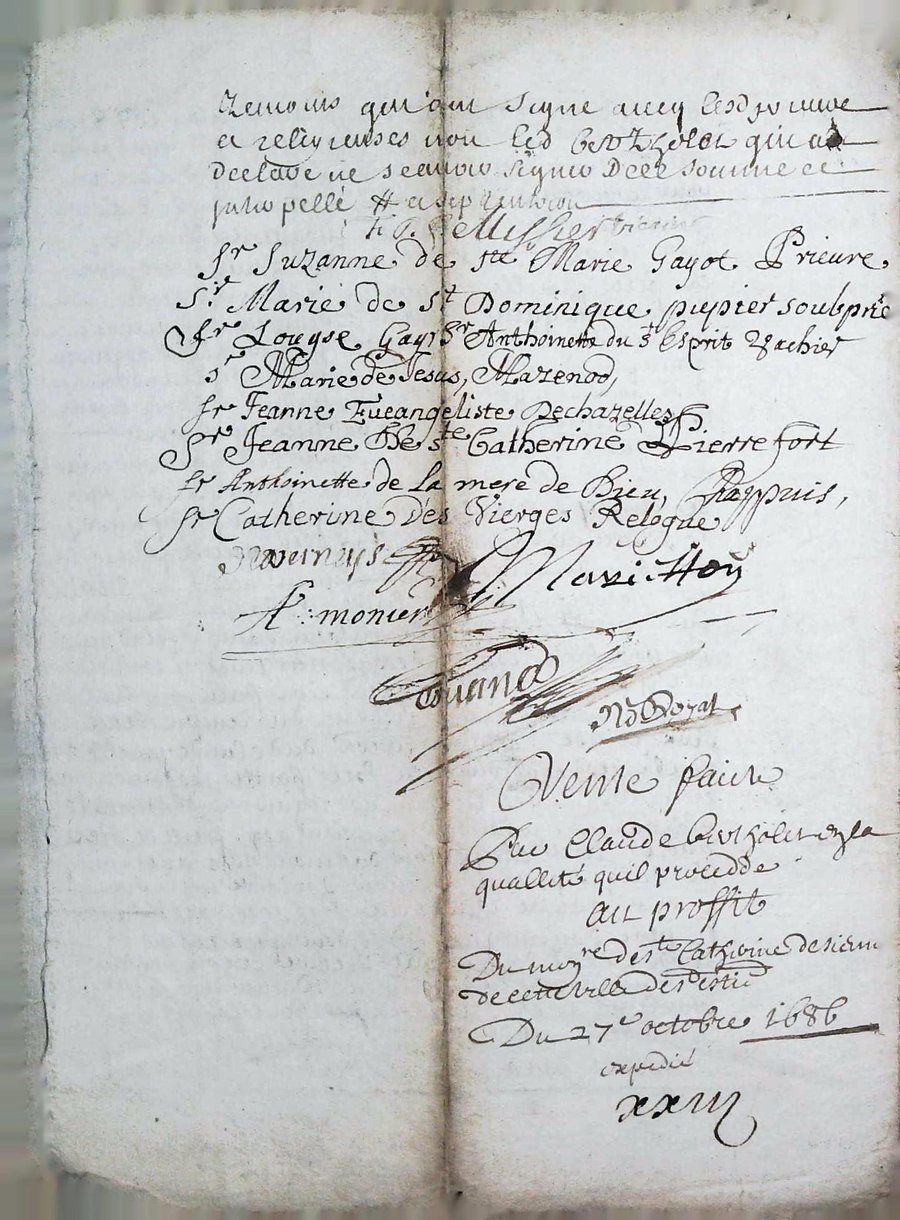 temoins qui ont signe avecq lesd prieure
et religieuses non led Bertholet qui a
declare ne scavoir signer de ce somme et
f. Pellissier
Sr Suzanne de ste Marie Gayot Prieure
Sr Marie de st Dominique pupier soubprie
Sr Louyse Gay Sr Anthoinette du st Esprit Vachier
sr Marie de Jesus, Mazenod,
Sr Jeanne Eueangeliste Dechazelles
Sr Jeanne De ste Catherine Pierrefort
Sr Anthoinette de La mere de Dieu, Rappuis,
Sr Catherine Des Vierges Relogue
Maritton
A monier
Vente faite
Par Claude Bertholet en la
quallité quil procedde
au proffit
Du monre de ste Catherine de sienne
de cette ville de st
Du 27e octobre 1686
expedié
xxiii